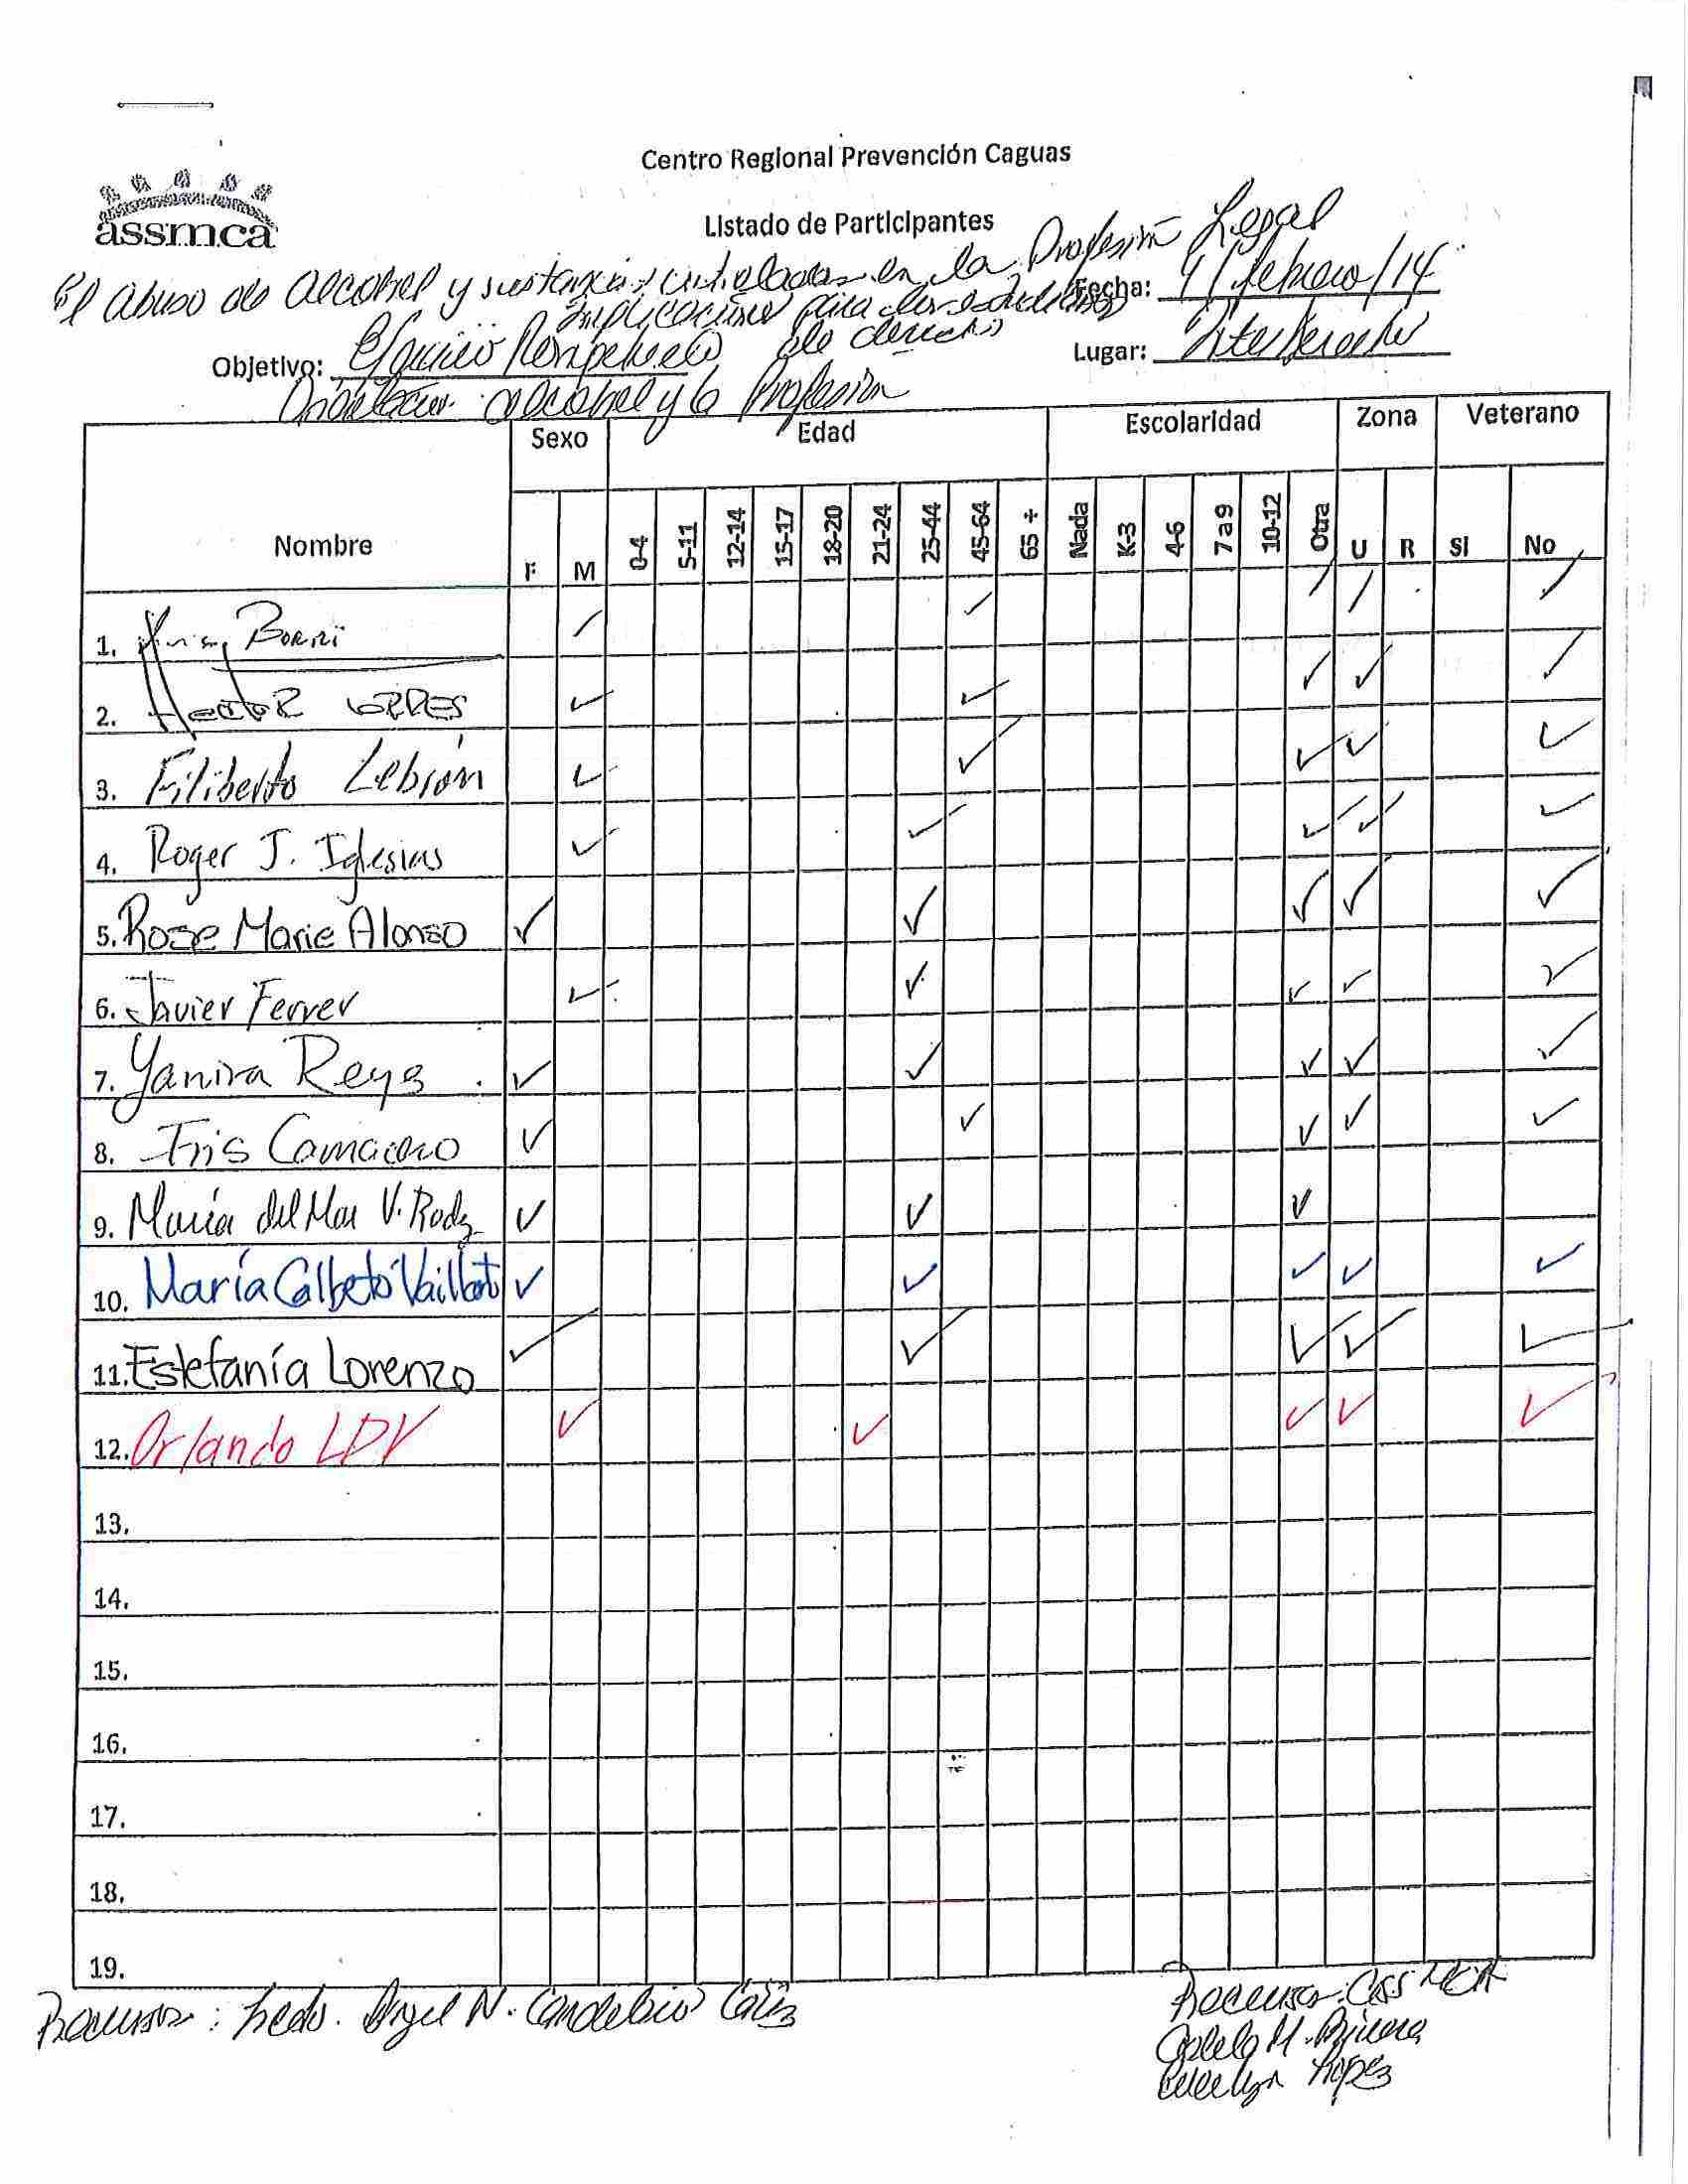 Centro Regional Prevención Caguas
assmca
Listado de Participantes
El Abuso de Alcohol y sustancias controladas en la Profesión Legal
implicaciones para los estudiantes de derecho
Fecha: 4/febrero/14
Objetivo: Ejercicio Rompehielo
Lugar: Inter Derecho
alcohol y la Profesión
Nombre Sexo Edad Escolaridad Zona Veterano
F M 0-4 5-11 12-14 15-17 18-20 21-24 25-44 45-64 65 + Nada K-3 4-6 7 a 9 10-12 Otra U R SI No
1. ✓ ✓ ✓ ✓ ✓
2. Hector Torres ✓ ✓ ✓ ✓ ✓
3. Filiberto Lebrón ✓ ✓ ✓ ✓ ✓
4. Roger J. Iglesias ✓ ✓ ✓ ✓ ✓
5. Rose Marie Alonso ✓ ✓ ✓ ✓ ✓
6. Javier Ferrer ✓ ✓ ✓ ✓ ✓
7. Yanira Reyes ✓ ✓ ✓ ✓ ✓
8. Iris Camacho ✓ ✓ ✓ ✓ ✓
9. María del Mar V. Rodz ✓ ✓ ✓
10. María Calbetó Vaillant ✓ ✓ ✓ ✓ ✓
11. Estefanía Lorenzo ✓ ✓ ✓ ✓ ✓
12. Orlando LDV ✓ ✓ ✓ ✓ ✓
13.
14.
15.
16.
17.
18.
19.
Recurso: Lcdo. Angel N. Candelario Cáliz
Recurso: ASSMCA
M. Rivera
Evelyn López